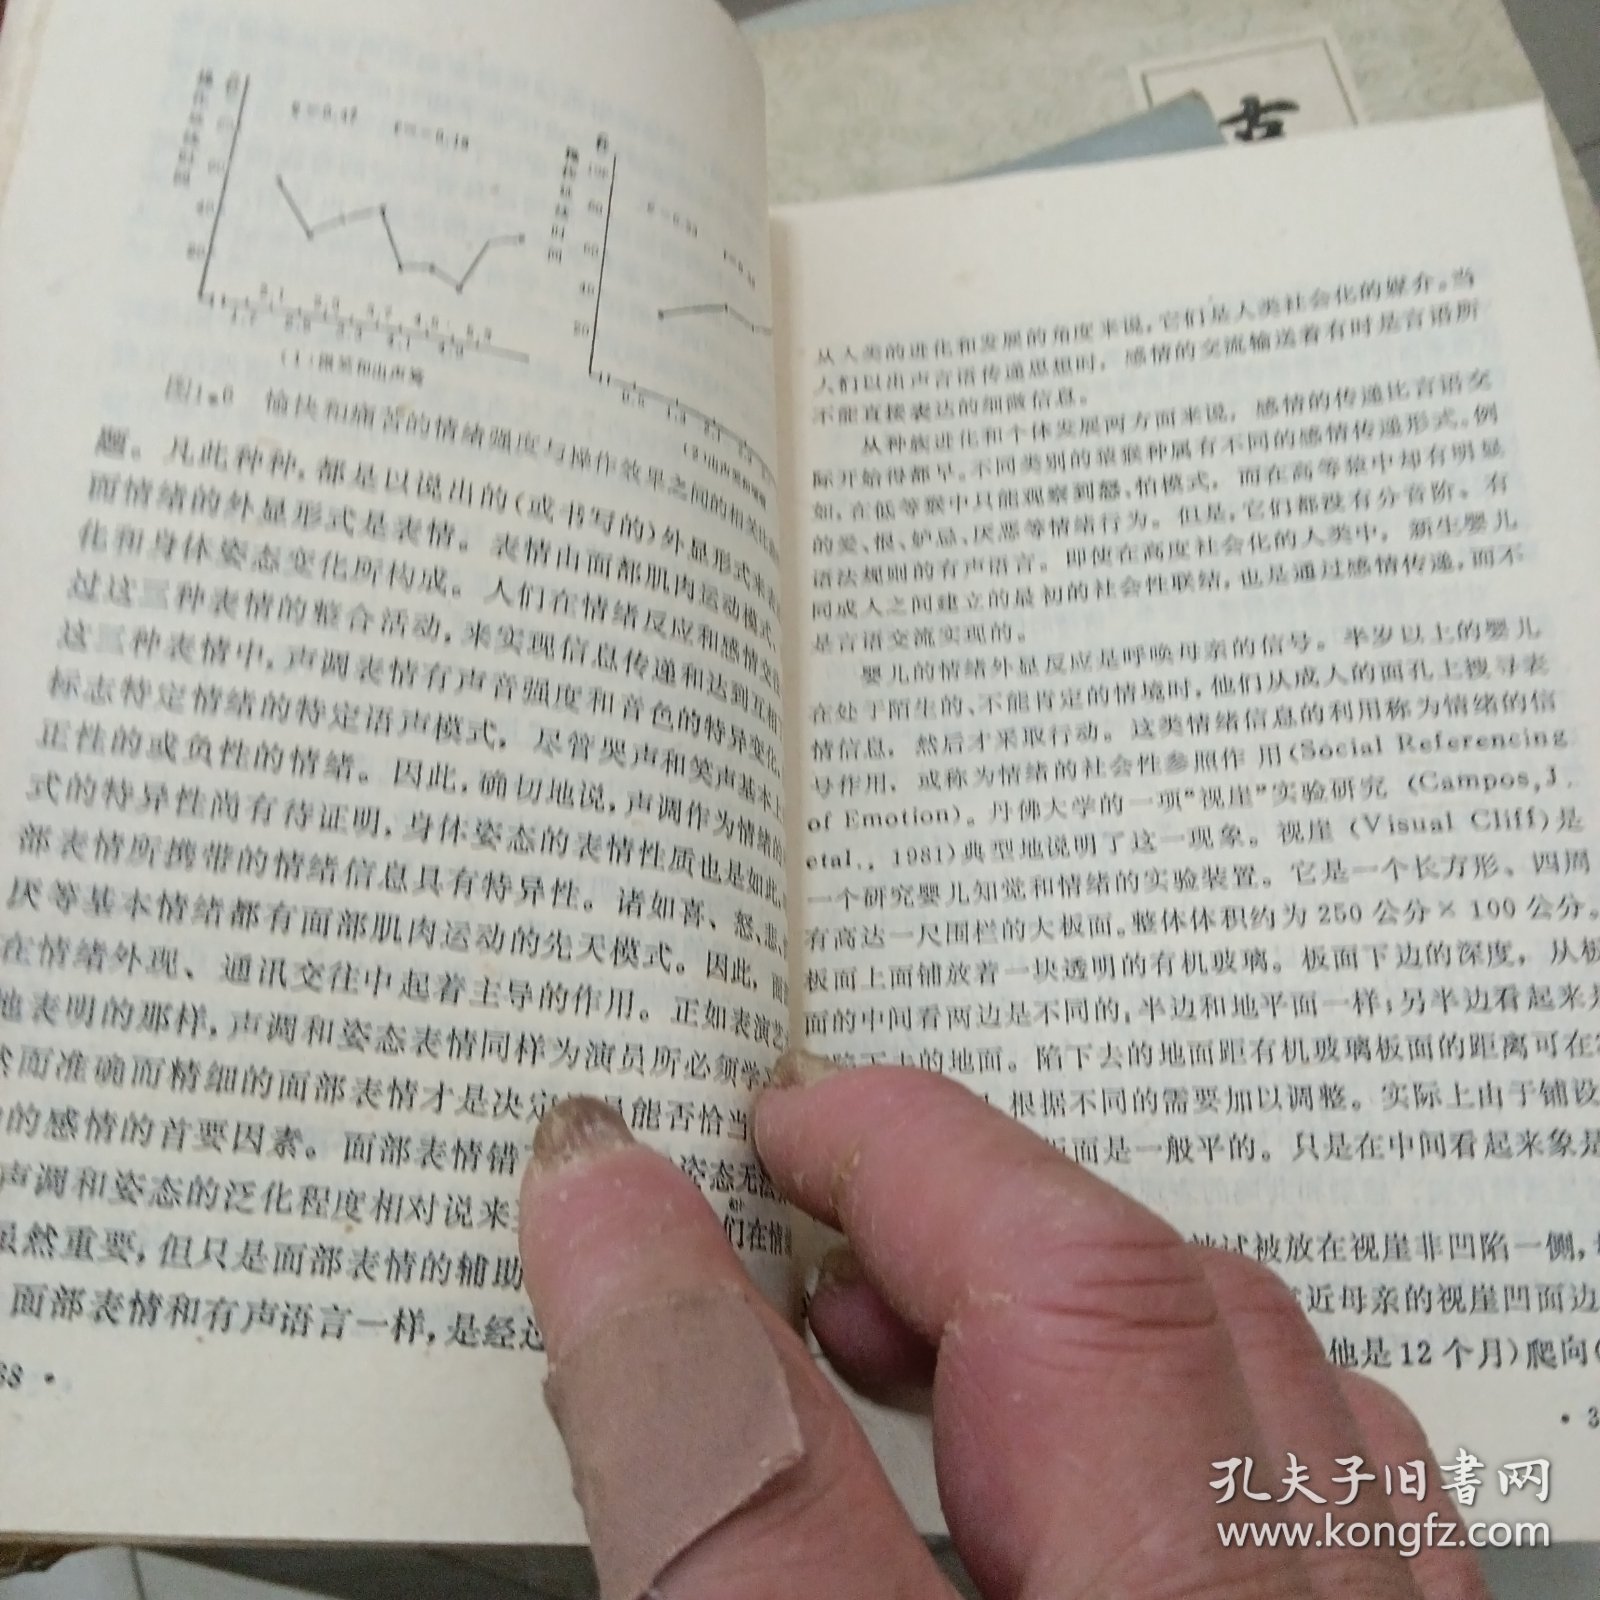 (1)
图1.6 愉快和痛苦的情绪强度与操作效果之间的相关比
题。凡此种种,都是以说出的(或书写的)外显形式来
而情绪的外显形式是表情。表情由面部肌肉运动模式、
化和身体姿态变化所构成。人们在情绪反应和感情交
过这三种表情的整合活动,来实现信息传递和达到互相
这三种表情中,声调表情有声音强度和音色的特异变化,
标志特定情绪的特定语声模式。尽管哭声和笑声基本上
正性的或负性的情绪。因此,确切地说,声调作为情绪的
式的特异性尚有待证明,身体姿态的表情性质也是如此,
部表情所携带的情绪信息具有特异性。诸如喜、怒、悲、
厌等基本情绪都有面部肌肉运动的先天模式。因此,
在情绪外现、通讯交往中起着主导的作用。正如表演艺
地表明的那样,声调和姿态表情同样为演员所必须学
而准确而精细的面部表情才是决定 员能否恰当
的感情的首要因素。面部表情错 姿态无法
声调和姿态的泛化程度相对说来
虽然重要,但只是面部表情的辅助 们在情
面部表情和有声语言一样,是经过
从人类的进化和发展的角度来说,它们是人类社会化的媒介。当
人们以出声言语传递思想时,感情的交流输送着有时是言语所
不能直接表达的细微信息。
从种族进化和个体发展两方面来说,感情的传递比言语交
际开始得都早。不同类别的猿猴种属有不同的感情传递形式。例
如,在低等猴中只能观察到怒、怕模式,而在高等猿中却有明显
的爱、恨、妒忌、厌恶等情绪行为。但是,它们都没有分音阶、有
语法规则的有声语言。即使在高度社会化的人类中,新生婴儿
同成人之间建立的最初的社会性联结,也是通过感情传递,而不
是言语交流实现的。
婴儿的情绪外显反应是呼唤母亲的信号。半岁以上的婴儿
在处于陌生的、不能肯定的情境时,他们从成人的面孔上搜寻表
情信息,然后才采取行动。这类情绪信息的利用称为情绪的信
号作用,或称为情绪的社会性参照作用(Social Referencing
of Emotion)。丹佛大学的一项“视崖”实验研究 (Campos,J.
etal., 1981)典型地说明了这一现象。视崖 (Visual Cliff)是
一个研究婴儿知觉和情绪的实验装置。它是一个长方形、四周
有高达一尺围栏的大板面。整体体积约为250公分×100公分。
板面上面铺放着一块透明的有机玻璃。板面下边的深度,从板
面的中间看两边是不同的,半边和地平面一样;另半边看起来
陷下去的地面。陷下去的地面距有机玻璃板面的距离可在
根据不同的需要加以调整。实际上由于铺设
板面是一般平的。只是在中间看起来象是
被试被放在视崖非凹陷一侧,
近母亲的视崖凹面边
他是12个月)爬向
孔夫子旧书网
www.kongfz.com